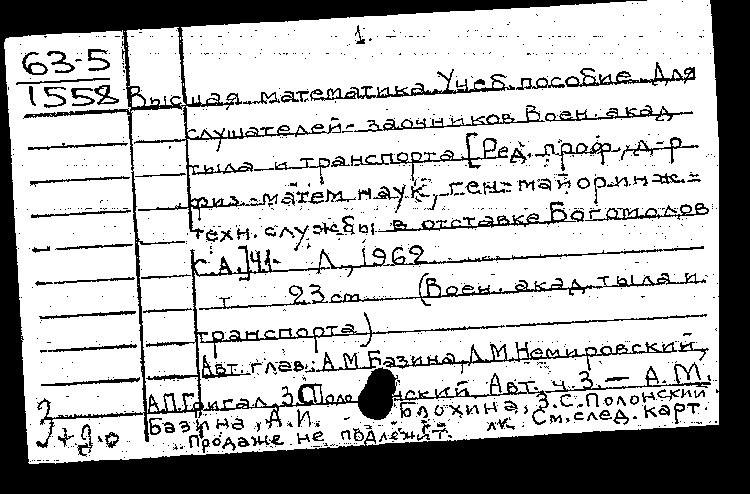 1.
63-5
1558
Высшая математика. Учеб. пособие. Для
слушателей-заочников Воен. акад
тыла и транспорта. [Ред. проф., д-р
физ.-матем наук, ген-майор инж.-
техн. службы в отставке Богомолов
С.А.] Ч1- Л., 1962
т 23 cm (Воен. акад. тыла и
транспорта)
Авт. глав: А.М Базина, Л.М.Немировский,
А.П.Григал, З.С Поло нский Авт. ч. 3. — А.М.
Базина, А.И. Блохина, З.С.Полонский
Продаже не подлежит. лк См. след. карт.